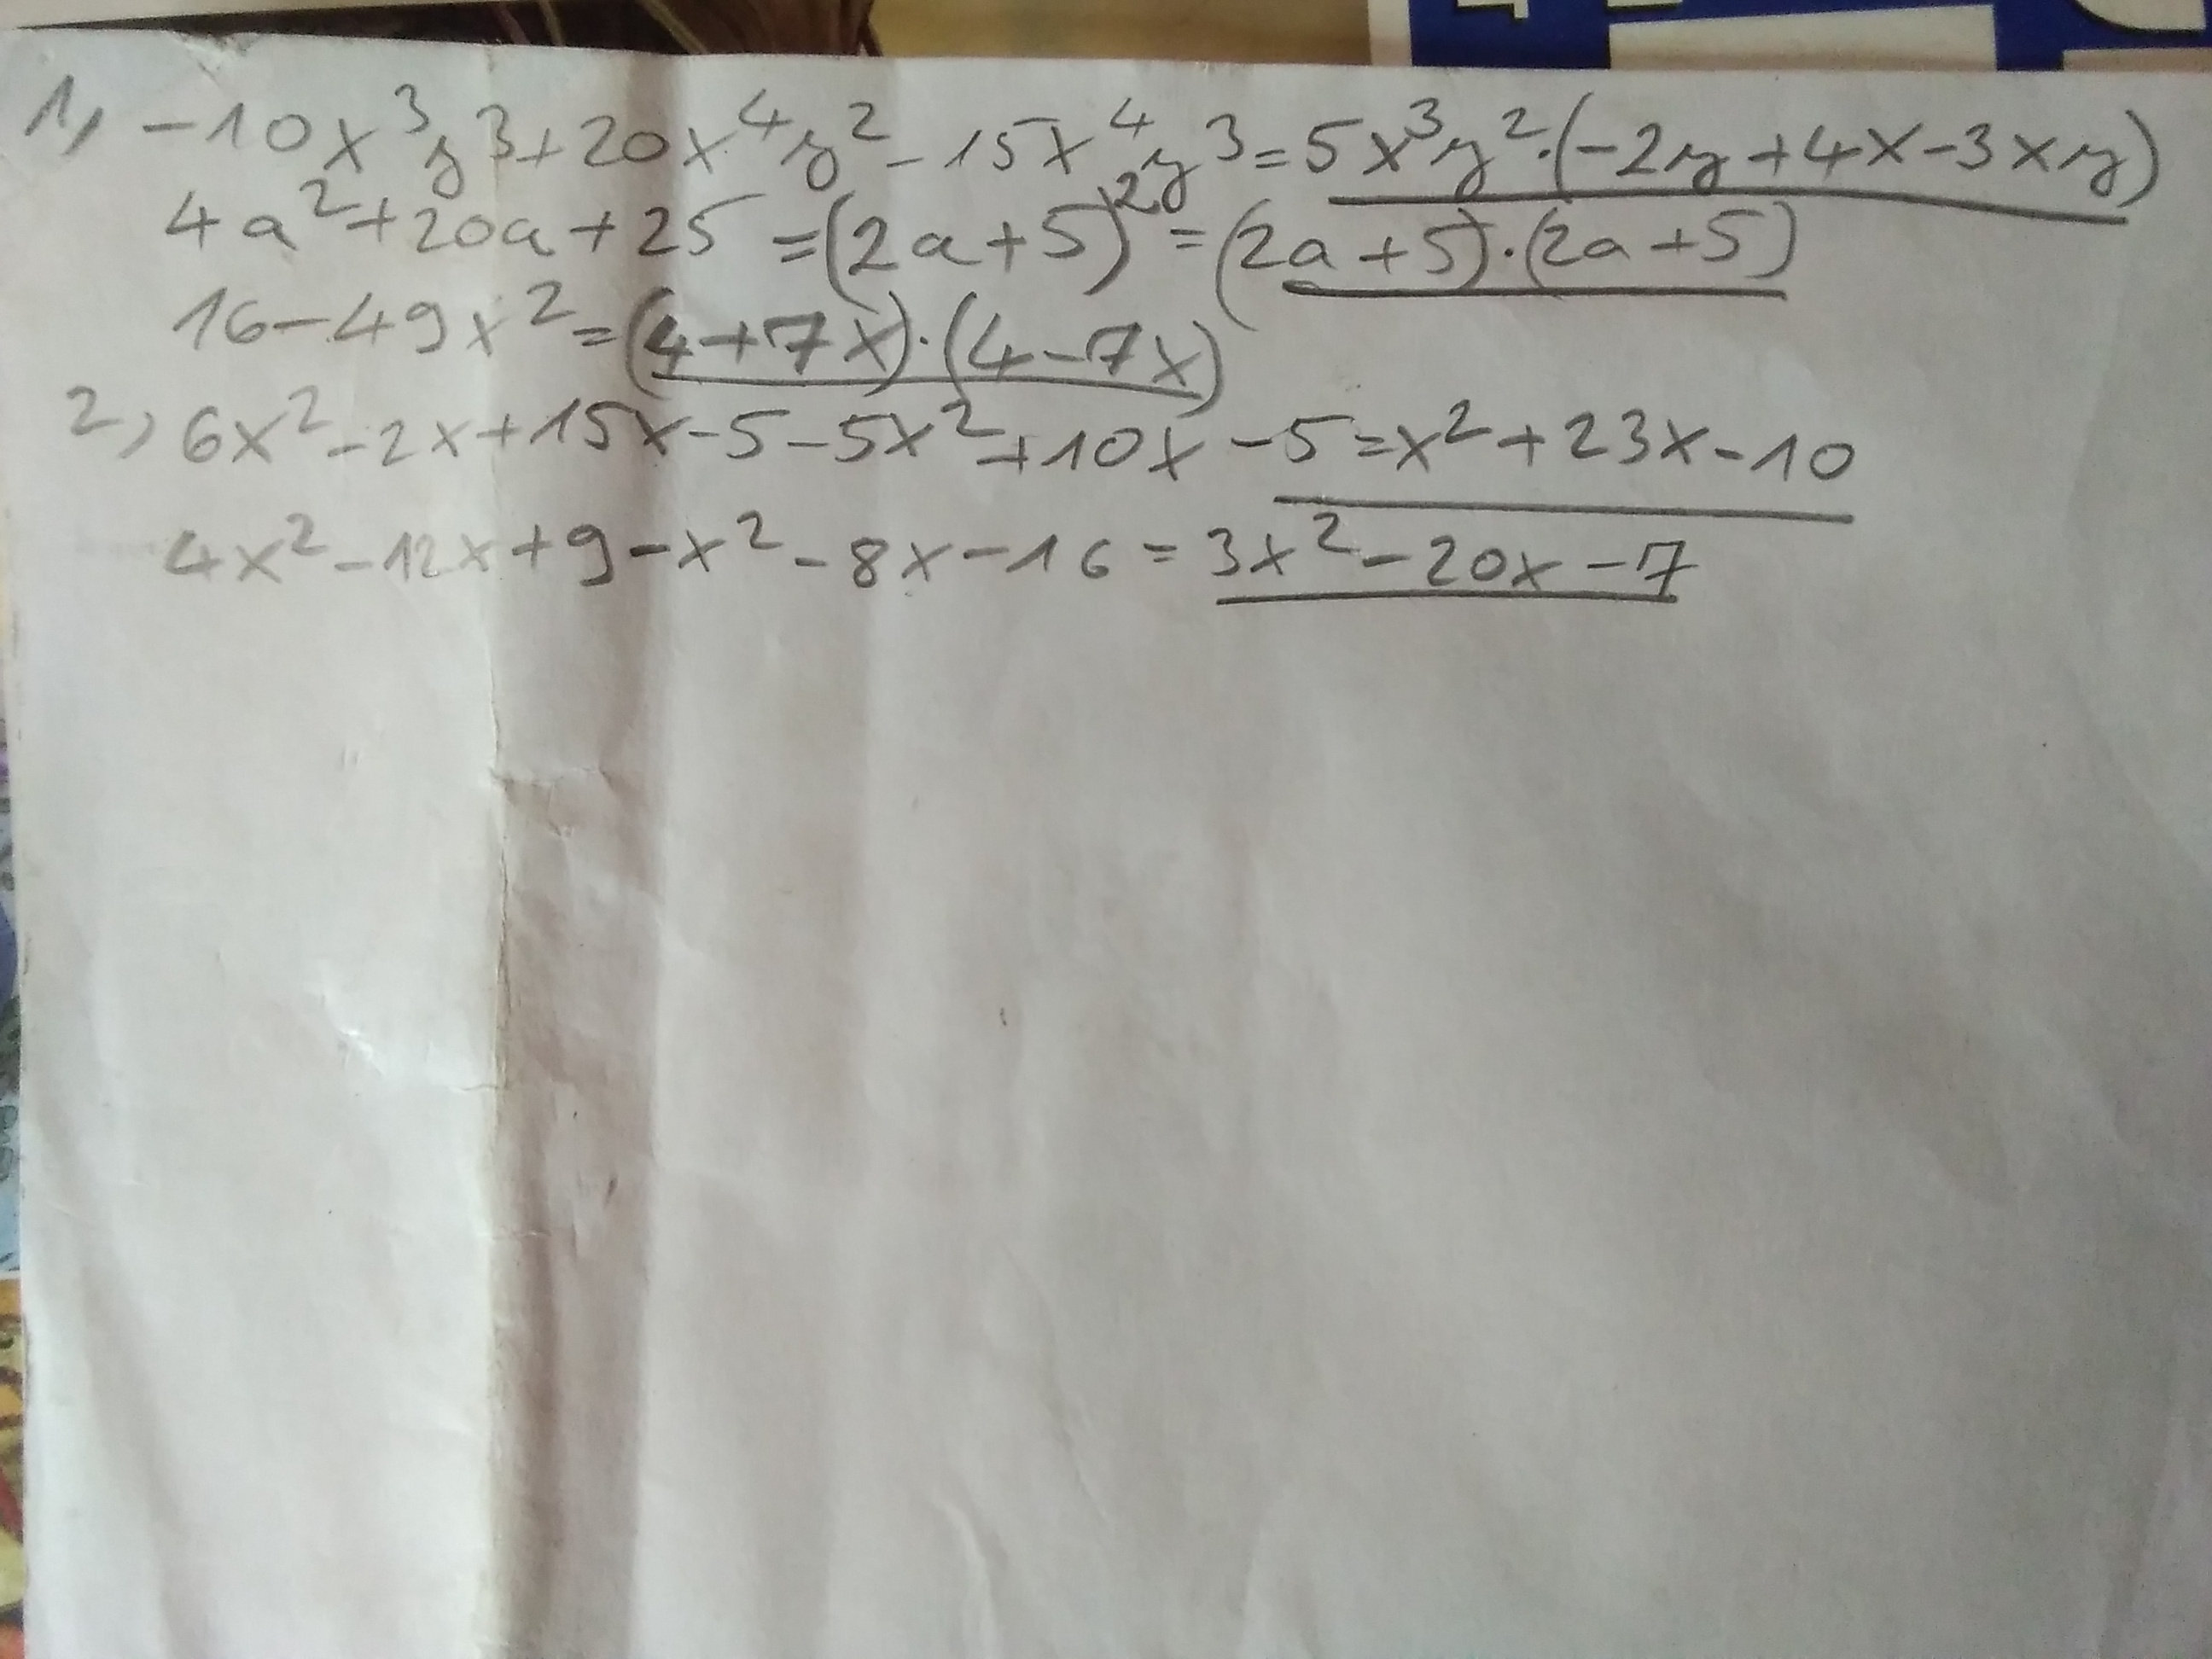 1, -10x³y³+20x⁴y²-15x⁴y³=5x³y²·(-2y+4x-3xy)
4a²+20a+25=(2a+5)²=(2a+5)·(2a+5)
16-49x²=(4+7x)·(4-7x)
2, 6x²-2x+15x-5-5x²+10x-5=x²+23x-10
4x²-12x+9-x²-8x-16=3x²-20x-7